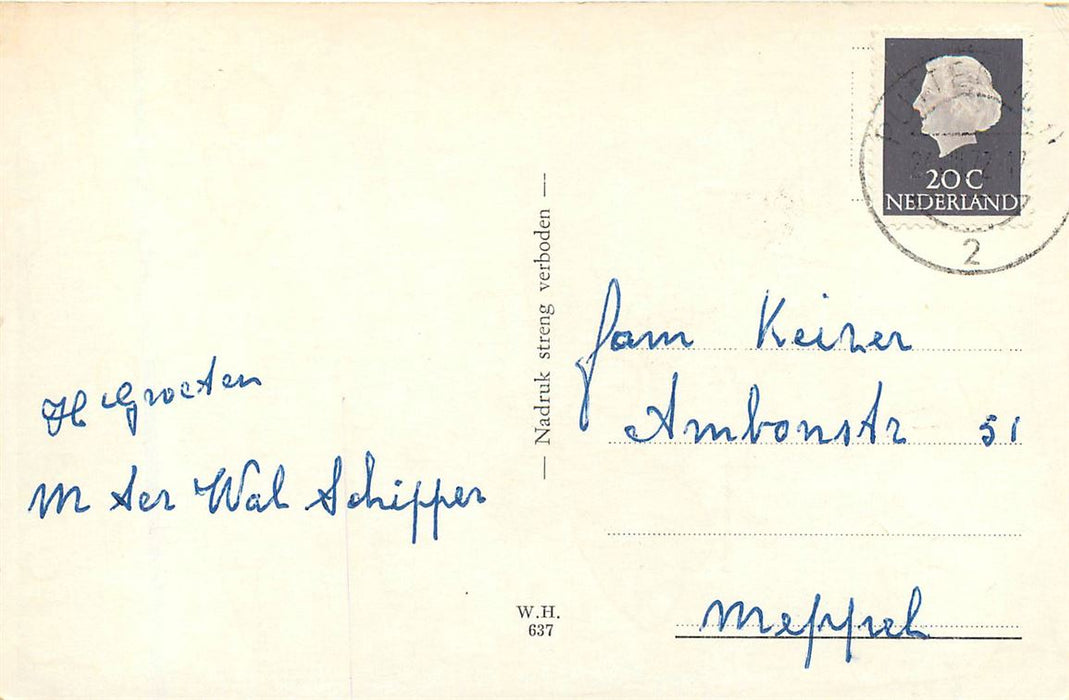 20 C
NEDERLAND
2
Fam Keizer
Ambonstr 51
Meppel
H Groeten
M ter Wal Schipper
— Nadruk streng verboden —
W.H.
637